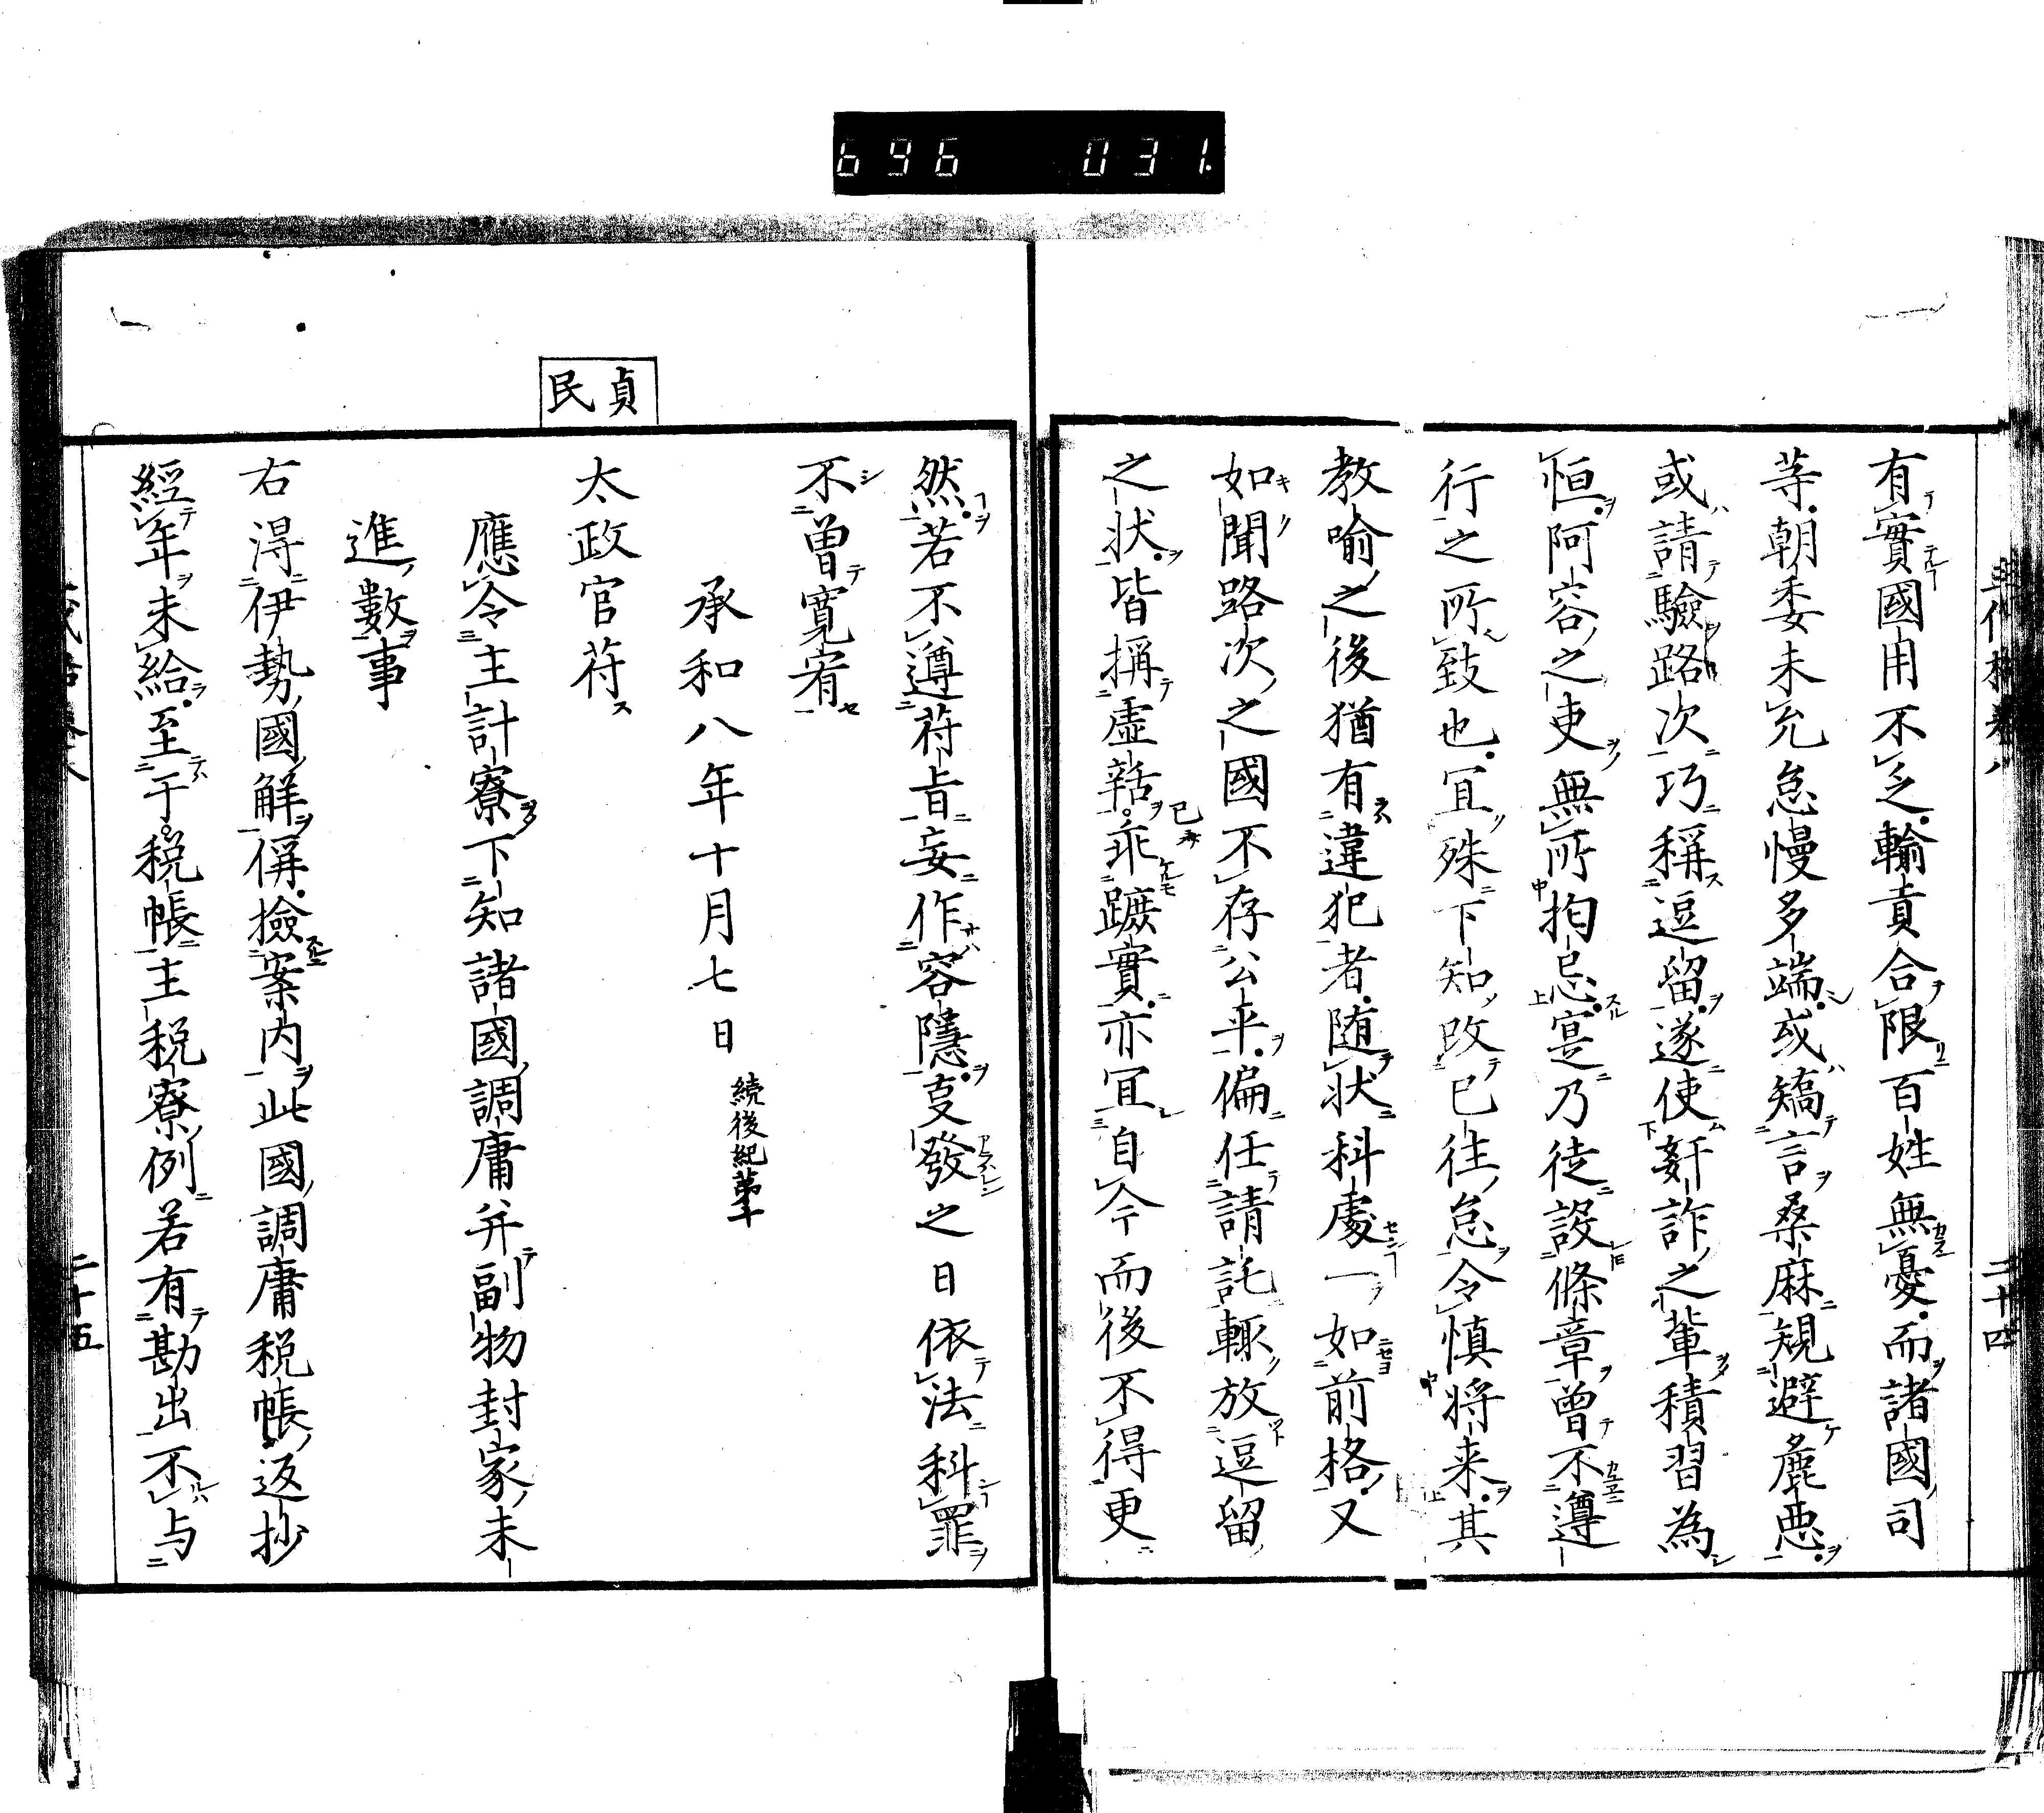 696 031
有實國用不乏輸貢合限百姓無憂而諸國司
等朝委未允怠慢多端或矯言桑麻規避麁悪
或請驗路次巧稱逗留遂使姧詐之輩積習為
恒阿容之吏無所拘忌寔乃徒設條章曾不遵
行之所致也冝殊下知改已往怠令慎将来其
教喻之後猶有違犯者随状科處一如前格又
如聞路次之國不存公平偏任請託輙放逗留
之状皆稱虚誥乖蹠實亦冝自今而後不得更
然若不遵苻旨妄作容隱叓發之日依法科罪
不曾寛宥
承和八年十月七日 続後紀第十
貞民
太政官苻
應令主計寮下知諸國調庸并副物封家未
進數事
右得伊勢國解偁撿案内此國調庸税帳返抄
經年未給至于税帳主税寮例若有勘出不与
二十四
二十五